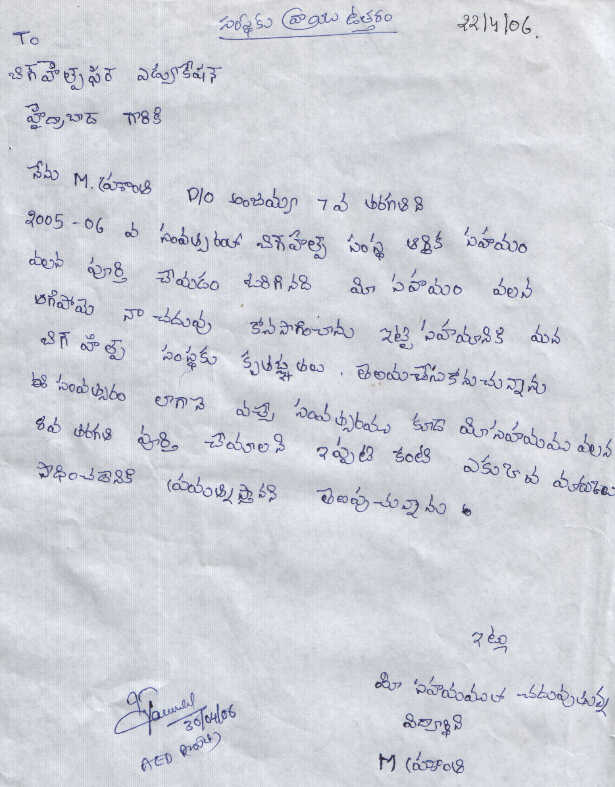 సంస్థకు వ్రాయు ఉత్తరం
22/4/06.
To
బిగ్ హెల్ప్ ఫర్ ఎడ్యుకేషన్
హైద్రాబాద్ గారికి
నేను M. ప్రశాంతి D/O అంజయ్య 7వ తరగతిని
2005-06 వ సంవత్సరంలో బిగ్ హెల్ప్ సంస్థ ఆర్థిక సహయం
వలన పూర్తి చేయడం జరిగినది మీ సహయం వలన
ఆగిపోయె నా చదువు కొనసాగించాను ఇట్టి సహయానికి మన
బిగ్ హెల్ప్ సంస్థకు కృతజ్ఞతలు. తెలియచేసుకొనుచున్నాను
ఈ సంవత్సరం లాగానె వచ్చె సంవత్సరము కూడ మీ సహయము వలన
8వ తరగతి పూర్తి చేయాలని ఇప్పటి కంటె ఎకువ మార్కులు
సాధించడానికి ప్రయత్నిస్తానని తెలుపుచున్నాను.
ఇట్లు
మీ సహయముతో చదువుతున్న
విద్యార్థిని
M ప్రశాంతి
30/04/06